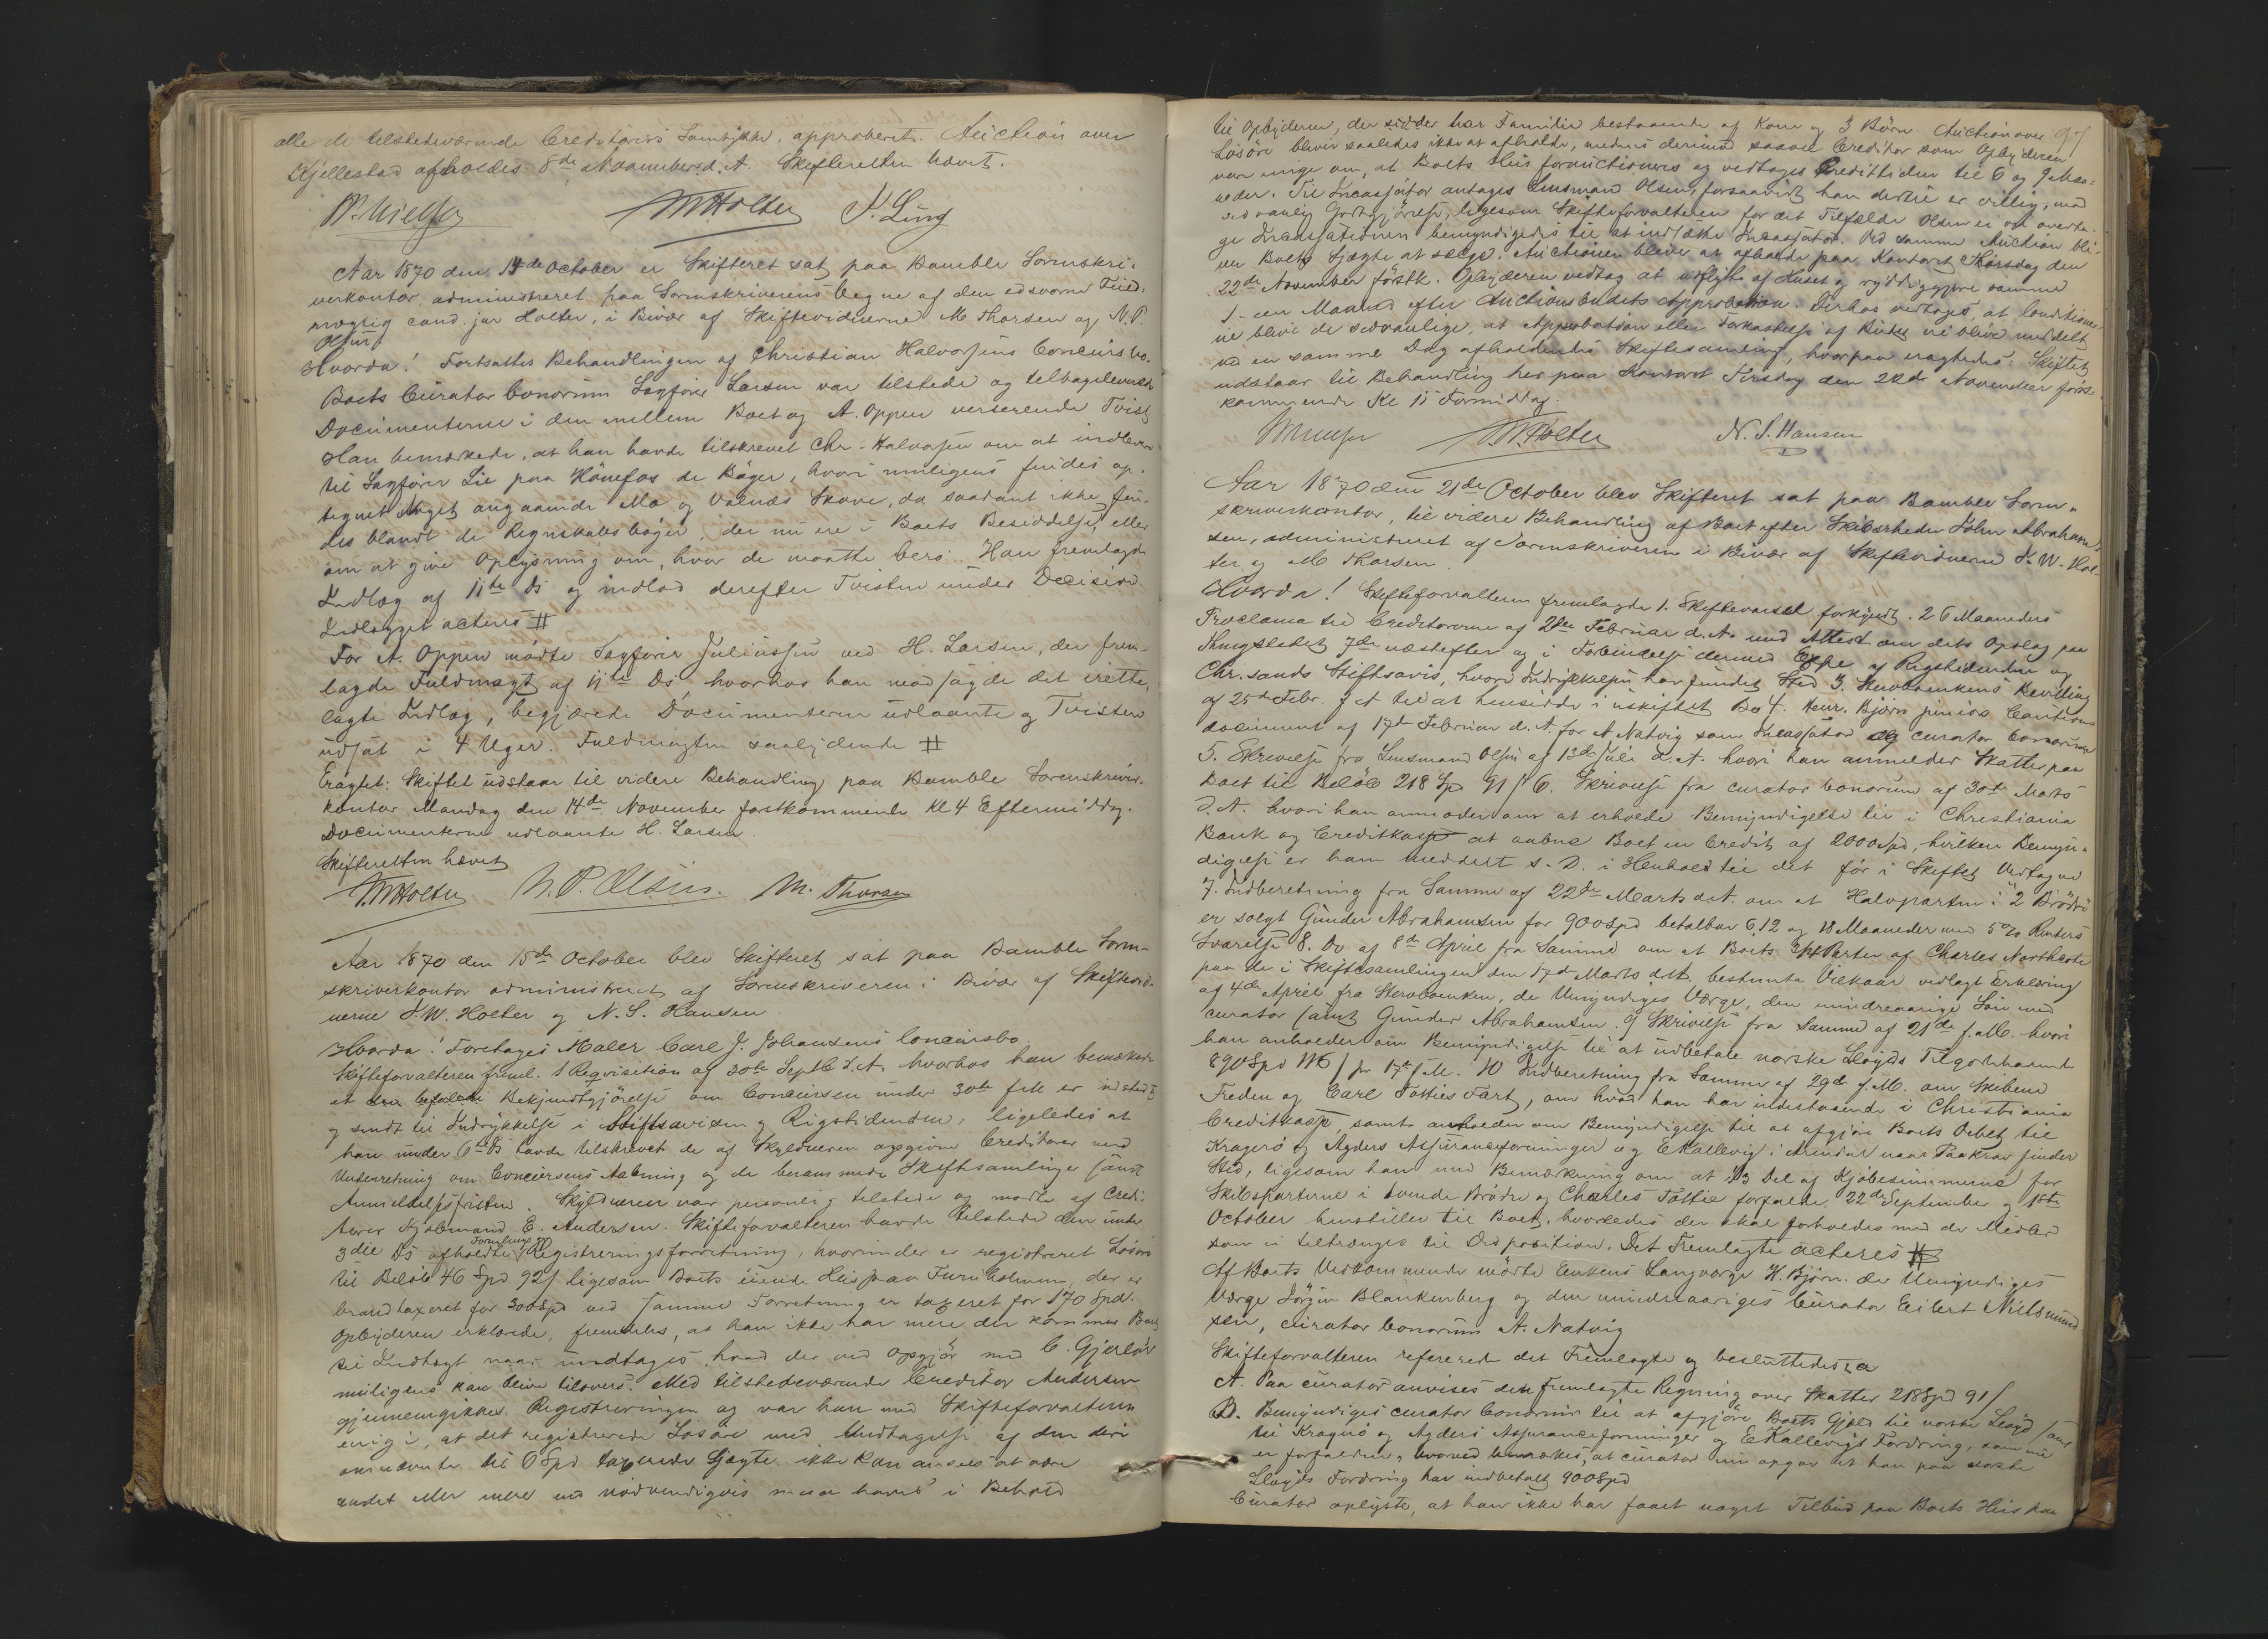 alle de tilstedeværende Creditorers Samtykke, approberet. Auction over
Kjellestad afholdes 8de November d. A. Skifteretten hævet.
JWHolter J. Ling
Aar 1870 den 14de October er Skifteret sat paa Bamble Sorenskri-
verkontor administreret paa Sorenskriverens Vegne af den edsvorne Fuld-
mægtig cand. jur Holter, i Bivær af Skiftevidnerne M Thorsen og N. P.
Olsen
Hvorda! Fortsattes Behandlingen af Christian Halvorsens Concursbo.
Boets Curator bonorum Sagfører Larsen var tilstede og tilbageleverede
Documenterne i den mellem Boet og A. Oppen verserende Tvist
Han bemærkede, at han havde tilskrevet Chr. Halvorsen om at indlevere
til Sagfører Lie paa Hönefos de Bøger, hvori muligens findes op-
tegnet Noget angaaende Mo og Valnæs Skove, da saadant ikke fin-
des blandt de Regnskabsbøger, der nu ere i Boets Besiddelse, eller
om at give Oplysning om, hvor de maatte bero. Han fremlagde
Indlæg af 11te Ds og indlod derefter Tvisten under Decision
Indlægget acteres #
For A. Oppen mødte Sagfører Juliussen ved H. Larsen, der frem-
lagde Fuldmagt af 11te Ds, hvorhos han modsagde det irette-
lagte Indlæg, begjærede Documenterne udlaante og Tvisten
udsat i 4 Uger. Fuldmagten saalydende #
Eragtet: Skiftet udstaar til videre Behandling paa Bamble Sorenskriver-
kontor Mandag den 14de November førstkommende Kl 4 Eftermiddag.
Documenterne udlaante H. Larsen
Skifteretten hævet
JWHolter N. P. Olsen. M. Thorsen
Aar 1870 den 15de October blev Skifteret sat paa Bamble Soren-
skriverkontor administreret af Sorenskriveren i Bivær af Skiftevid-
nerne J. W. Holter og N. S. Hansen
Hvorda! Foretoges Maler Carl J. Johansens Concursbo
Skifteforvalteren freml. 1 Reqvisition af 30te Septb d. A. hvorhos han bemærkede
at den befalede Bekjendtgjørelse om Concursen under 30te f.M. er udstedt
og sendt til Indrykkelse i Stiftsavisen og Rigstidenden, ligeledes at
han under 6te Ds havde tilskrevet de af Skyldneren opgivne Creditorer med
Underretning om Concursens Aabning og de berammede Skiftesamlinger samt
Anmeldelsesfristen. Skyldneren var personlig tilstede og mødte af Credi-
torer Kjøbmand E. Andersen. Skifteforvalteren havde tilstede den under
3die Ds afholdte Registreringsforretning, hvorunder er registreret Løsøre
til Beløb 46 Spd 92 ß ligesom Boets eiende Hus paa Furuholmen, der er
brandtaxeret for 300 Spd ved samme Forretning er taxeret for 170 Spd.
Opbyderen erklærede, fremdeles, at han ikke har mere der kommer Boet
til Indtægt naar undtages, hvad der ved Opgjør med C. Gjerløv
muligens kan blive tilovers. Med tilstedeværende Creditor Andersen
gjennemgikkes Registreringen og var han med Skifteforvalteren
enig i, at det registrerede Løsøre med Undtagelse af den deri
omnævnte til 6 Spd taxerede Sjægte ikke kan ansees at være
andet eller mere end nødvendigvis maa haves i Behold
97
til Opbyderen, der sidder har Familie bestaaende af Kone og 3 Børn. Auction over
Løsöre bliver saaledes ikke at afholde, medens derimod saavel Creditor som Opbyderen
vare enige om, at Boets Hus forauctioneres og vedtoges Credittiden til 6 og 9 Maa-
neder. Til Incassator antages Lensmand Olsen, forsaavidt han dertil er villig, mod
sedvanlig Godtgjörelse, ligesom Skifteforvalteren for det Tilfælde Olsen ei vil overta-
ge Incassationen bemyndigedes til at indsætte Incassator. Ved samme Auction bli-
ver Boets Sjægte at sælge. Auctionen bliver at afholde paa Kontoret Tirsdag den
22de November førstk. Opbyderen vedtog at udflytte af Huset og ryddiggjøre samme
1 - een Maaned efter Auctionsbudets Approbation. Derhos vedtoges, at Conditioner-
ne blive de sedvanlige, at Approbation eller Forkastelse af Budet vil blive meddelt
ved en samme Dag afholdendes Skiftesamling, hvorpaa eragtedes: Skiftet
udstaar til Behandling her paa Kontoret Tirsdag den 22de November først-
kommende Kl 11 Formiddag.
JWHolter N. S. Hansen
Aar 1870 den 21de October blev Skifteret sat paa Bamble Soren-
skriverkontor, til videre Behandling af Boet efter Skibsrheder John Abraham-
sen, administreret af Sorenskriveren i Bivær af Skiftevidnerne J. W. Hol-
ter og M Thorsen.
Hvorda! Skifteforvalteren fremlagde 1. Skiftevarsel forkyndt. 2 6 Maaneders
Proclama til Creditorerne af 2den Februar d. A. med Attest om dets Opslag paa
Thingstedet 7de næstefter og i Forbindelse dermed Expe af Rigstidenden og
Chr.sands Stiftsavis, hvori Indrykkelsen har fundet Sted 3. Stervboenkens Bevilling
af 25de Febr. f A til at hensidde i uskiftet Bo 4. Henr. Bjørn juniors Cautions
document af 17de Februar d. A. for A Natvig som Incassator og curator bonorum
5. Skrivelse fra Lensmand Olsen af 13de Juli d. A. hvori han anmelder Skatter paa
Boet til Beløb 218 Sp 91 ß 6. Skrivelse fra curator bonorum af 30te Marts
d. A. hvori han anmoder om at erholde Bemyndigelse til i Christiania
Bank og Creditkasse at aabne Boet en Credit af 2000 Spd, hvilken Bemyn-
digelse er ham meddelt s. D. i Henhold til det før i Skiftet Vedtagne
7. Indberetning fra Samme af 22de Marts d. A. om at Halvparten i "2 Brødre
er solgt Gunder Abrahamsen for 900 Spd betalbar 6, 12 og 18 Maaneder med 5 % Renters
Svarelse 8. Do af 8de April fra Samme om at Boets Parter af Charles Northcote
paa de i Skiftesamlingen den 17de Marts d. A. bestemte Vilkaar vedlagt Erklæring
af 4de April fra Stervboenken, de Umyndiges Værge, den mindreaarige Søn med
curator samt Gunder Abrahamsen. 9 Skrivelse fra Samme af 21de f. M. hvori
han anholder om Bemyndigelse til at udbetale norske Lloyds Tilgodehavende
890 Spd pr 17de f M. 10 Indberetning fra Samme af 29de f. M. om Skibene
Freden og Carl Totties Fart, om hvad han har indestaaende i Christiania
Creditkasse, samt anholder om Bemyndigelse til at afgjøre Boets Debet til
Kragerö og Agders Assuranceforeninger og E Kallevig i Arendal naar Paakrav finder
Sted, ligesom han med Bemærkning om at 1/3 Del af Kjøbesummerne for
Skibsparterne i tvende Brødre og Charles Tottie forfaldt 22de September og 1ste
October henstiller til Boet, hvorledes der skal forholdes med de Midler
som ei tiltrænges til Disposition. Det Fremlagte acteres #
Af Boets Vedkommende mødte Enkens Laugværge H. Bjørn. de Umyndiges
Værge Jörgen Blankenberg og den mindreaariges Curator Eilert Nielsmund
sen, curator bonorum A. Natvig
Skifteforvalteren refererede det Fremlagte og besluttedes:
A. Paa curator anvises den fremlagte Regning over Skatter 218 Spd 91 ß
B. Bemyndiges curator bonorum til at afgjöre Boets Gjæld til norske Lloyd samt
til Kragerö og Agders Assuranceforeninger og E Kallevigs Fordring, som nu
er forfalden, hvorved bemærkes, at curator nu opgav at han paa norske
Lloyds Fordring har indbetalt 900 Spd
Curator oplyste, at han ikke har faaet noget Tilbud paa Boets Hus paa